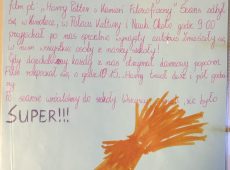 film pt. „Harry Potter i Kamień Filozoficzny". Seans odbył
się w kinotece, w Pałacu Kultury i Nauki. Około godz. 9.00
przyjechał po nas specjalnie wynajęty autokar.
w nim wszystkie osoby z naszej szkoły!
Gdy dojechaliśmy każdy z nas otrzymał darmowy popcorn.
Film rozpoczął się o godz. 10.15. Harry trwał dwie i pół godzi
ny.
Po seansie wróciliśmy do szkoły. że było
SUPER!!!